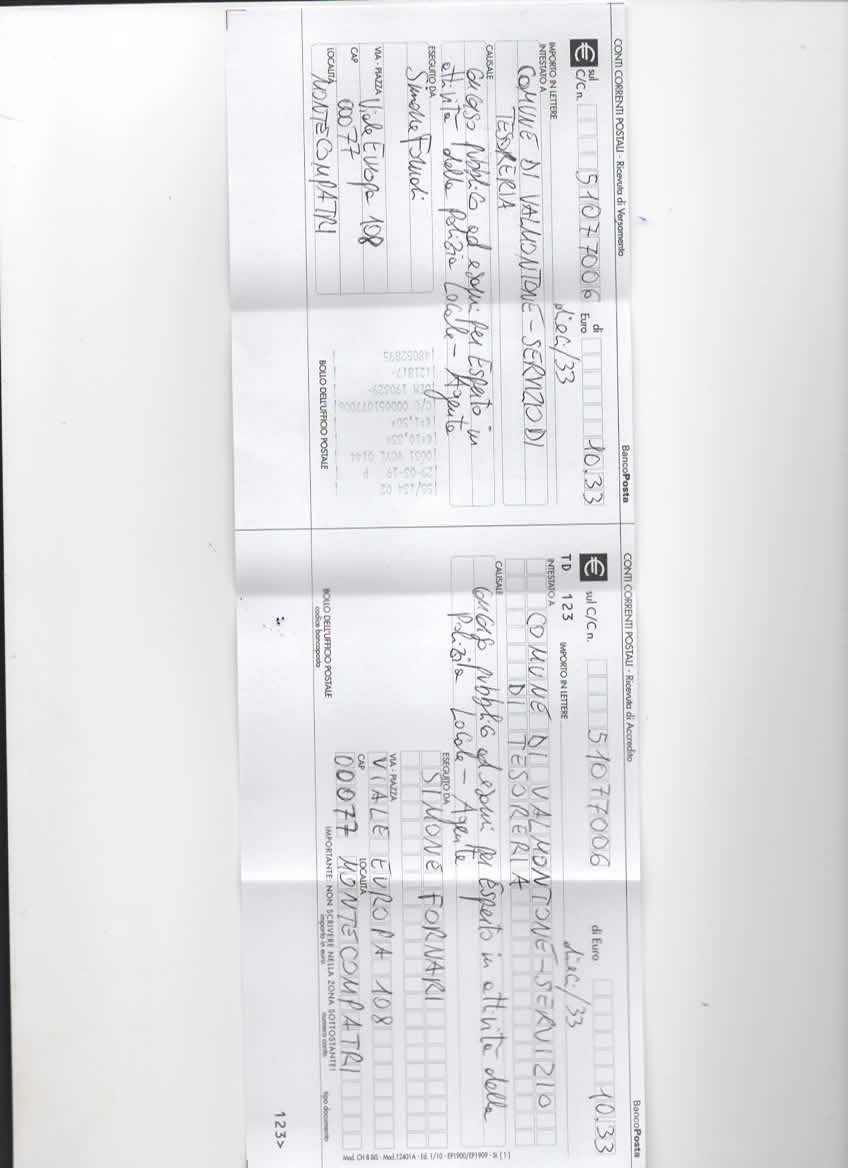 CONTI CORRENTI POSTALI - Ricevuta di Versamento
BancoPosta
€ sul C/C n. 51077006 di Euro 10.33
IMPORTO IN LETTERE dieci/33
INTESTATO A
COMUNE DI VALMONTONE - SERVIZIO DI
TESORERIA
CAUSALE
pubblico ed esami per Esperto in
attività della polizia Locale - Agente
ESEGUITO DA
Simone Fornari
VIA - PIAZZA Viale Europa 108
CAP 00077
LOCALITÀ MONTECOMPATRI
BOLLO DELL'UFFICIO POSTALE
55/154 02
29-03-19 P
0031 VCYL 0144
€*10,33*
€*1,50*
C/C 000051077006
DEN 190329-
121817-
48052895
CONTI CORRENTI POSTALI - Ricevuta di Accredito
BancoPosta
€ sul C/C n. 51077006 di Euro 10.33
TD 123 IMPORTO IN LETTERE dieci/33
INTESTATO A
COMUNE DI VALMONTONE - SERVIZIO
DI TESORERIA
CAUSALE
pubblico ed esami per Esperto in attività della
Polizia Locale - Agente
ESEGUITO DA
SIMONE FORNARI
VIA - PIAZZA
VIALE EUROPA 108
CAP LOCALITÀ
00077 MONTECOMPATRI
BOLLO DELL'UFFICIO POSTALE
codice bancoposta
IMPORTANTE: NON SCRIVERE NELLA ZONA SOTTOSTANTE!
importo in euro numero conto tipo documento
123>
Mod. CH 8 BIS - Mod. 12401A - Ed. 1/10 - EP1900/EP1909 - St [1]